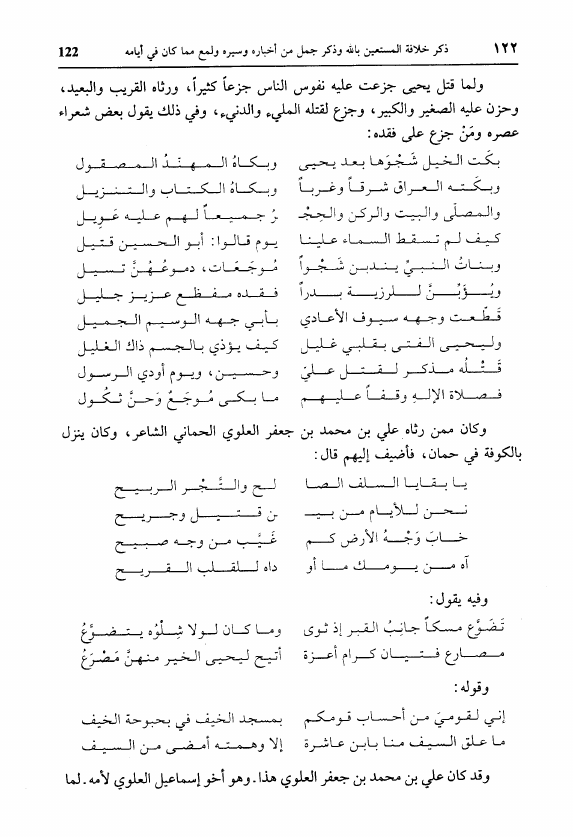 ١٢٢ ذكر خلافة المستعين بالله وذكر جمل من أخباره وسيره ولمع مما كان في أيامه 122
ولما قتل يحيى جزعت عليه نفوس الناس جزعاً كثيراً، ورثاه القريب والبعيد،
وحزن عليه الصغير والكبير، وجزع لقتله المليء والدنيء، وفي ذلك يقول بعض شعراء
عصره ومَنْ جزع على فقده:
بكت الخيل شَجْوَها بعد يحيى وبكاهُ المهنَّدُ المصقول
وبكته العراق شرقاً وغرباً وبكاهُ الكتاب والتنزيل
والمصلَّى والبيت والركن والحِجْـ ـرُ جميعاً لهم عليه عَوِيل
كيف لم تسقط السماء علينا يوم قالوا: أبو الحسين قتيل
وبناتُ النبيِّ يندبن شَجْواً مُوجَعَات، دموعُهُنَّ تسيل
ويُؤَبِّنَّ للرزية بدراً فقده مفظع عزيز جليل
قَطَّعت وجهه سيوف الأعادي بأبي جهه الوسيم الجميل
وليحيى الفتى بقلبي غليل كيف يؤذي بالجسم ذاك الغليل
قَتْلُه مذكر لقتل عليّ وحسين، ويوم أودي الرسول
فصلاة الإله وقفاً عليهم ما بكى مُوجَعٌ وَحنَّ ثكُول
وكان ممن رثاه علي بن محمد بن جعفر العلوي الحماني الشاعر، وكان ينزل
بالكوفة في حمان، فأضيف إليهم قال:
يا بقايا السلف الصا لح والتَّجْر الربيح
نحن للأيام من بيـ ـن قتيل وجريح
خابَ وَجْهُ الأرض كم غَيَّب من وجه صبيح
آه من يومك ما أو داه للقلب القريح
وفيه يقول:
تَضَوَّع مسكاً جانِبُ القبر إذ ثوى وما كان لولا شِلْوُه يتضوَّعُ
مصارع فتيان كرام أعزة أتيح ليحيى الخير منهنَّ مَصْرَعُ
وقوله:
إني لقوميَ من أحساب قومكم بمسجد الخيف في بحبوحة الخيف
ما علق السيف منا بابن عاشرة إلا وهمته أمضى من السيف
وقد كان علي بن محمد بن جعفر العلوي هذا ـ وهو أخو إسماعيل العلوي لأمه ـ لما